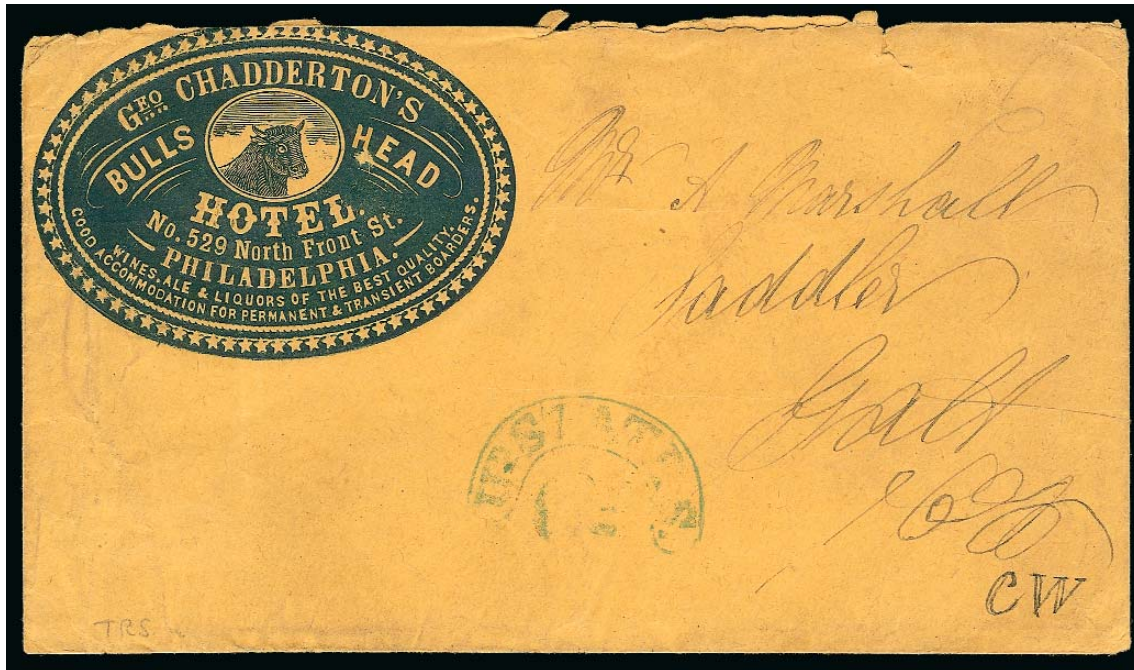 GEO CHADDERTON'S
BULLS HEAD
HOTEL.
No. 529 North Front St.
PHILADELPHIA.
WINES, ALE & LIQUORS OF THE BEST QUALITY.
GOOD ACCOMMODATION FOR PERMANENT & TRANSIENT BOARDERS.
Mr A Marshall
Saddler
Galt
CW
TRS